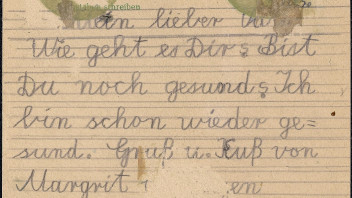 schreiben
lieber
Wie geht es Dir? Bist
Du noch gesund? Ich
bin schon wieder ge=
sund. Gruß u. Kuß von
Margrit